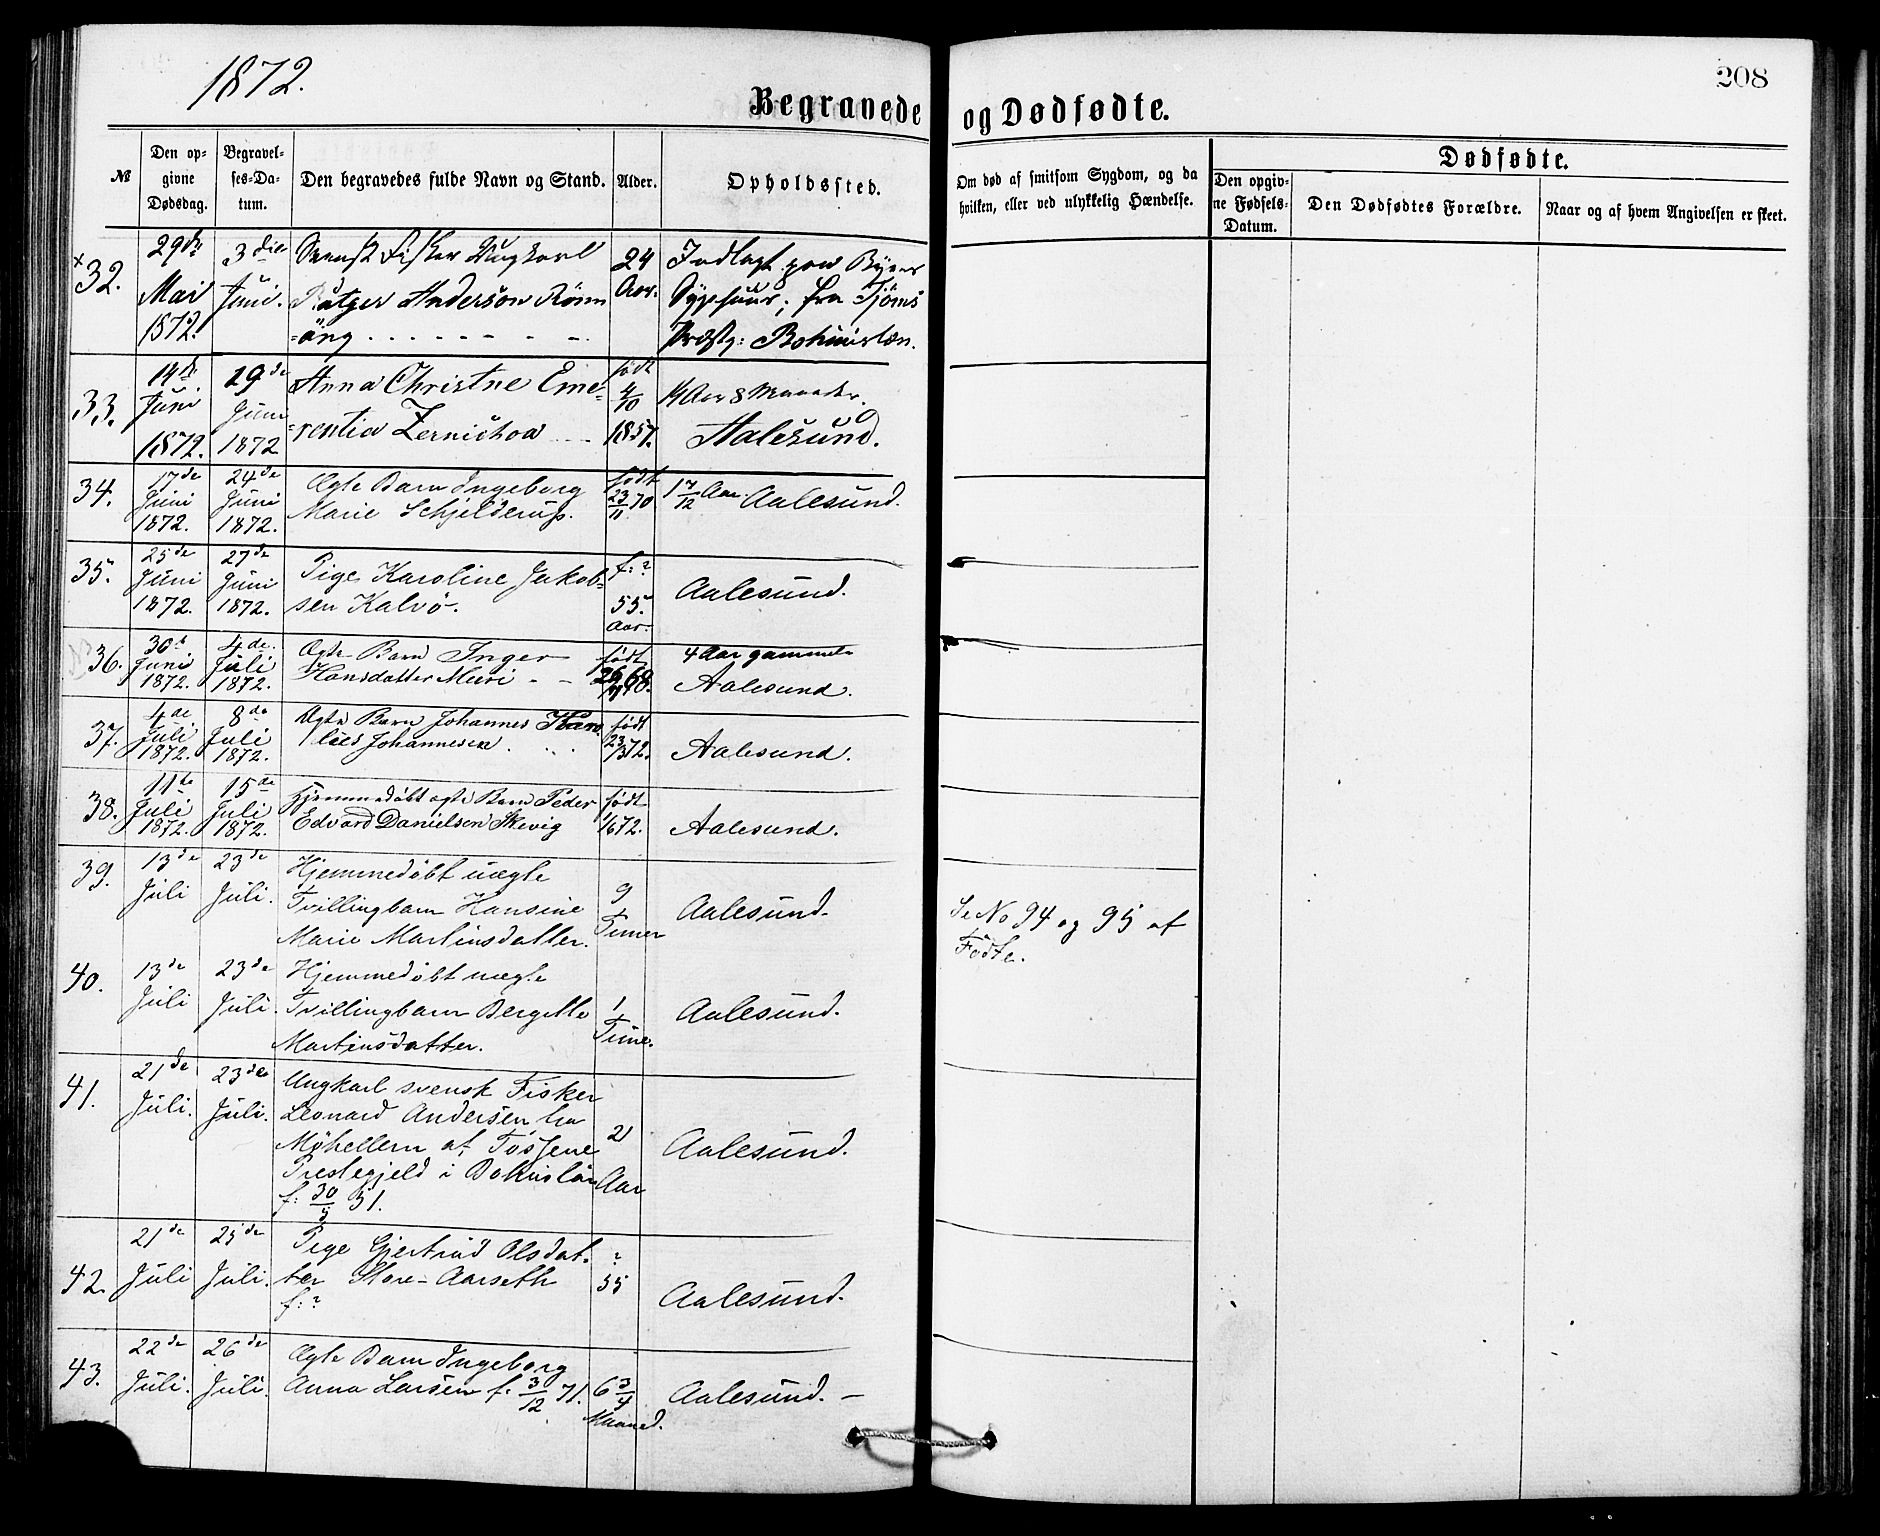 1872.
208
Begravede og Dødfødte.
№
Den op-
givne
Dødsdag.
Begravel-
ses-Da-
tum.
Den begravedes fulde Navn og Stand.
Alder.
Opholdssted.
Om død af smitsom Sygdom, og da
hvilken, eller ved ulykkelig Hændelse.
Dødfødte.
Den opgiv-
ne Fødsels-
Datum.
Den Dødfødtes Forældre.
Naar og af hvem Angivelsen er skeet.
x
32.
29de
Mai
1872.
3die
Juni.
Svensk Fisker Ungkarl
Rutger Anderson Rönn
=äng . . . . - - - -
24
Aar.
Indlagt paa Byens
Sygehuus; fra Tjöms
Præstg: Bohuuslæn.
33.
14de
Juni
1872.
29de
Juni
1872
Anna Christne Eme-
=rentia Zernichoa
født
4/10
1857.
14 Aar 8 Maaneder.
Aalesund.
34.
17de
Juni
1872.
24de
Juni
1872.
Ægte Barn Ingeborg
Marie Schjelderup.
født
23/11 70
1 7/12 Aar. Aalesund.
35.
25de
Juni
1872.
27de
Juni
1872.
Pige Karoline Jakob-
sen Kalvø.
f: ?
55.
Aar.
Aalesund.
36.
30te
Juni
1872.
4de.
Juli
1872.
Ægte Barn Inger
Hansdatter Muri - -
født
68.
4 Aar gammel
Aalesund.
37.
4de
Juli
1872.
8de
Juli
1872.
Ægte Barn Johannes
Johannesen . . . .
født
72.
Aalesund.
38.
11te
Juli
1872.
15de
Juli
1872.
Hjemmedøbt ægte Barn Peder
Edvard Danielsen Skevig
født
1/6 72.
Aalesund.
39.
13de
Juli
23de
Juli.
Hjemmedøbt uægte
Tvillingbarn Hansine
Marie Martinsdatter.
9
Timer
Aalesund.
Se No 94 og 95 af
Fødte.
40.
13de
Juli
23de
Juli.
Hjemmedøbt uægte
Tvillingbarn Bergitte
Martinsdatter.
1
Time.
Aalesund.
41.
21de
Juli.
23de
Juli.
Ungkarl svensk Fisker
Leonard Andersen fra
Möhellern af Tossene
Prestegjeld i Bohuslän
f: 30/5 51.
21
Aar
Aalesund.
42.
21de
Juli
25de
Juli.
Pige Gjertrud Olsdat-
ter Store-Aarseth
f: ?
?
55
Aalesund.
43.
22de
Juli.
26de
Juli.
Ægte Barn Ingeborg
Anna Larsen f: 3/12 71.
6 3/4
Maaned.
Aalesund. –